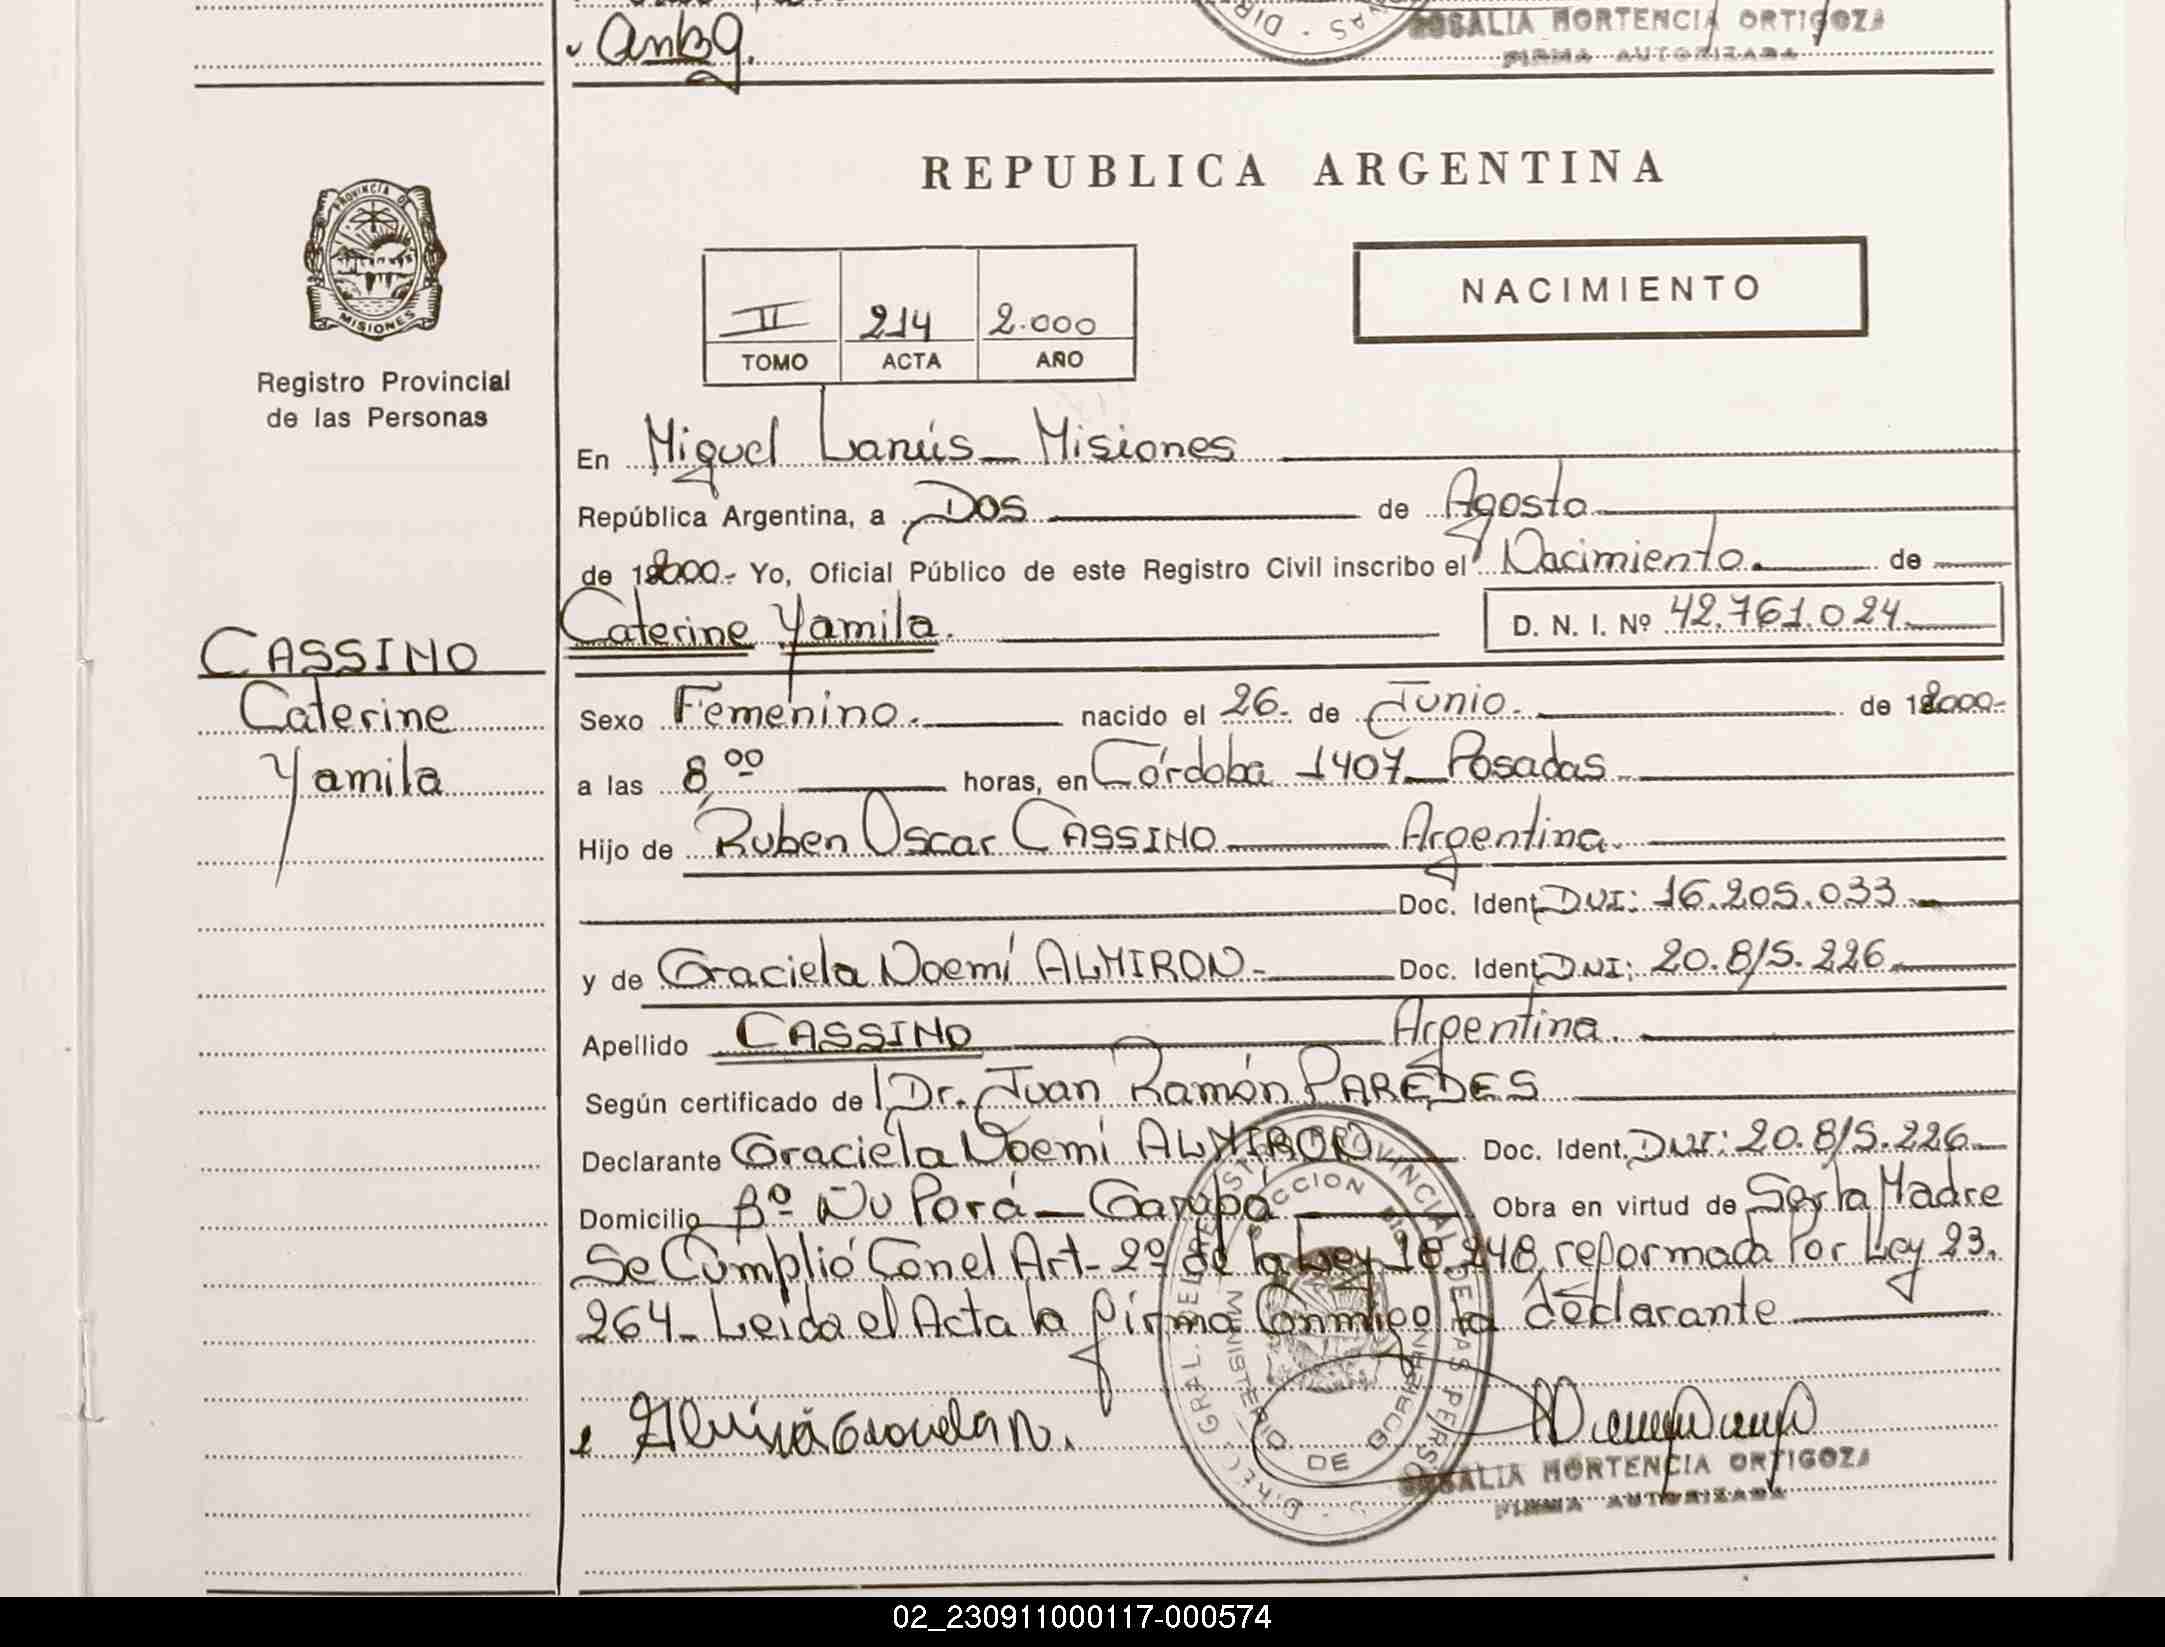 ROSALIA HORTENCIA ORTIGOZA
FIRMA AUTORIZADA
PROVINCIA DE
MISIONES
Registro Provincial
de las Personas
REPUBLICA ARGENTINA
NACIMIENTO
II 214 2.000
TOMO ACTA AÑO
En Miguel Lanús - Misiones
República Argentina, a Dos de Agosto
de 2000.- Yo, Oficial Público de este Registro Civil inscribo el Nacimiento. de
CASSINO
Caterine
Yamila
Caterine Yamila.
D. N. I. Nº 42.761.024
Sexo Femenino. nacido el 26. de Junio. de 2000.-
a las 8,00 horas, en Córdoba 1407 - Posadas
Hijo de Ruben Oscar CASSINO Argentina.
Doc. Ident. DNI: 16.205.033.
y de Graciela Noemí ALMIRON.- Doc. Ident. DNI: 20.815.226
Apellido CASSINO Argentina.
Según certificado de Dr. Juan Ramón PAREDES
Declarante Graciela Noemí ALMIRON Doc. Ident. DNI: 20.815.226
Domicilio Bº Ñu Porá - Garupá Obra en virtud de Ser la Madre
Se Cumplió Con el Art- 2º de la Ley 18.248, reformada Por Ley 23.
264 - Leída el Acta la firma Conmigo la declarante
DIREC. GRAL. DEL REGISTRO PROVINCIAL DE LAS PERSONAS
MINISTERIO DE GOBIERNO
ROSALIA HORTENCIA ORTIGOZA
FIRMA AUTORIZADA
02_230911000117-000574